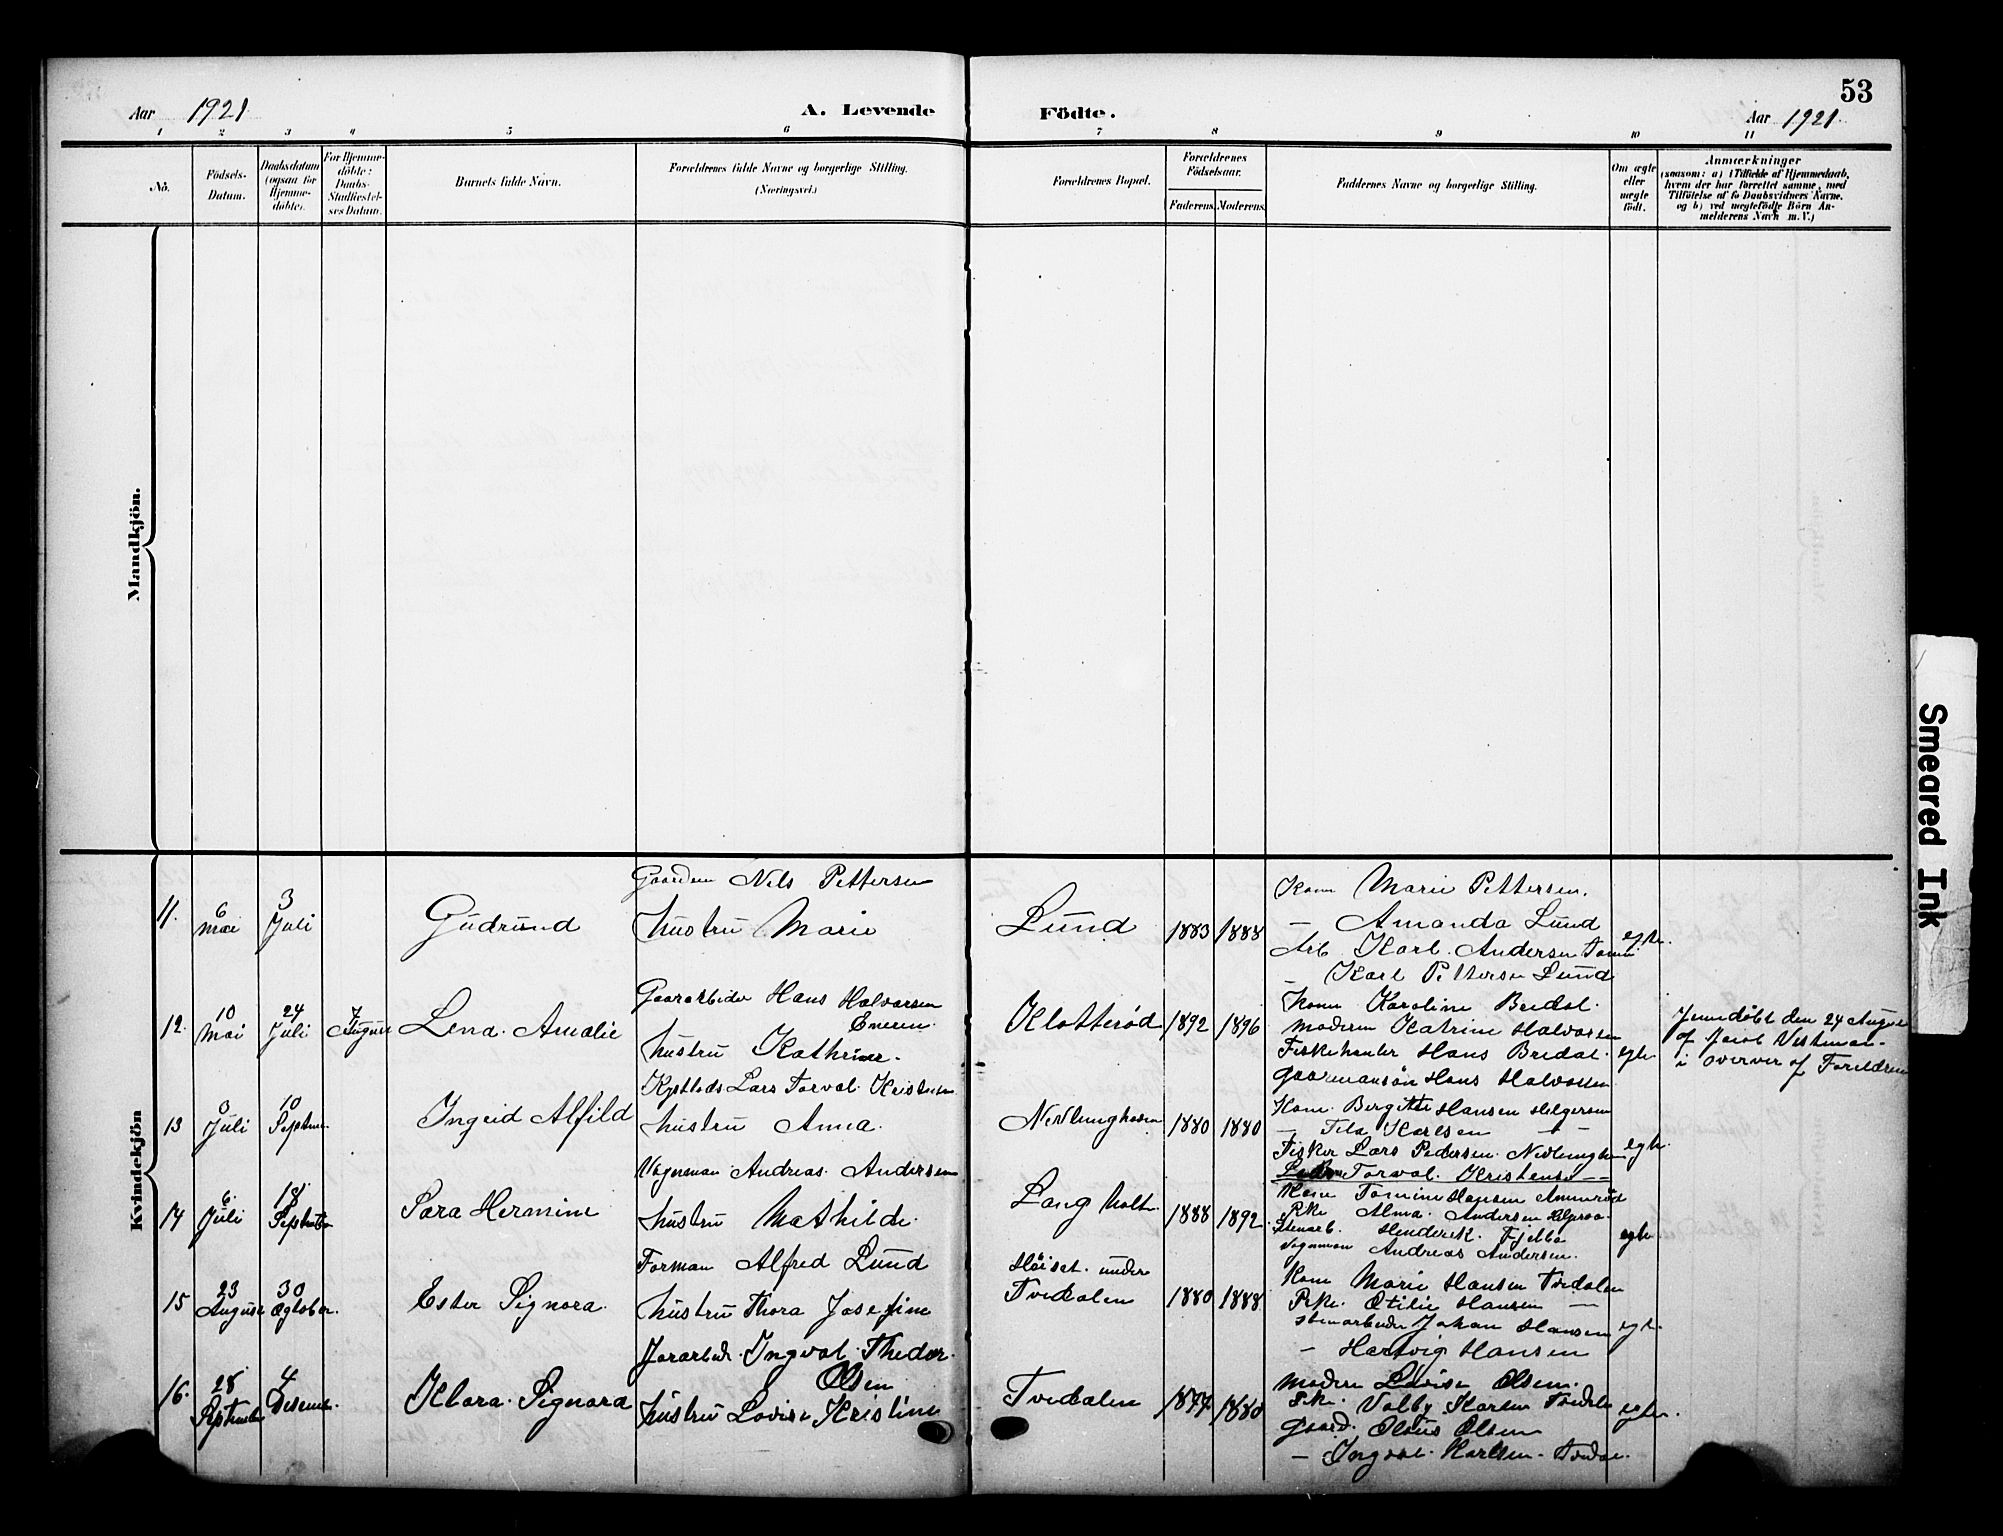 53
Aar 1921 A. Levende Födte. Aar 1921.
1 2 3 4 5 6 7 8 9 10 11
No.
Födsels-Datum.
Daabsdatum (ogsaa for Hjemme-döbte).
For Hjemme-döbte: Daabs-Stadfæstel-ses Datum.
Barnets fulde Navn.
Forældrenes fulde Navne og borgerlige Stilling.
(Næringsvei.)
Forældrenes Bopæl.
Forældrenes Födselsaar.
Faderens. Moderens.
Faddernes Navne og borgerlige Stilling.
Om ægte eller uægte födt.
Anmærkninger
(saasom: a) i Tilfælde af Hjemmedaab,
hvem der har forrettet samme, med
Tilföielse af to Daabsvidners Navne,
og b) ved uægtefödte Börn An-
melderens Navn m. V.)
Mandkjön.
Kvindekjön
11. 6 Mai 3 Juli Gudrund
Nils Pettersen
hustru Marie
Lund 1883 1888
Kone Marie Pettersen.
— Amanda Lund
Arb. Karl Andersen
— Karl Pettersen Lund
egte.
12. 10 Mai 24 Juli 7 August Lena Amalie
Gaararbeider Hans Halvorsen
hustru Kathrine.
Klotterød 1892 1896
Kone Karoline Bredal.
Moderen Katrine Halvorsen
Fiskehanler Hans Bredal.
Gaarmansön Hans Halvorsen
egte
Jemdöbt den 24 August
af Jacob
i overver af Foreldrene
13 Juli 10 Septem Ingrid Alfild
Lars Torval Kristensen
hustru Anna.
Nevlunghavn 1880 1880
Kone. Bergitte Hansen Helgeroen
— Karlsen —
Fisker Lars Pedersen. Nevlunghavn
Torval. Kristensen — —
egte.
14 6. Juli 18 September Sara Hermine
Vognman Andreas. Andersen
hustru Mathilde.
Langholt 1888 1892.
Kone Tomine Hansen
Pike Alma. Andersen
Stenarb. Henderik. Fjelbo
Vognman Andreas Andersen.
egte.
15 23 August 30 Ogtober. Ester Signora.
Forman Alfred Lund
hustru Thora Josefine
Höiset. under
Tvedalen 1880 1888
Kone Marie Hansen Tvedalen
Pike. Otilie Hansen —
Stenarbeider Johan Hansen
— Hartvig Hansen
egte.
16. 28 September 4 Desember. Klara. Signora
Jorarbeid. Ingval. Theder.
Olsen
hustru Lovise Kristine
Tvedalen 1877 1880
Modern Lovise Olsen.
Pike. Valby Karlsen Tvedalen
Gaard. Olaus Olsen
— Ingval. Karlsen. Tvedal.
egte.
Smeared Ink